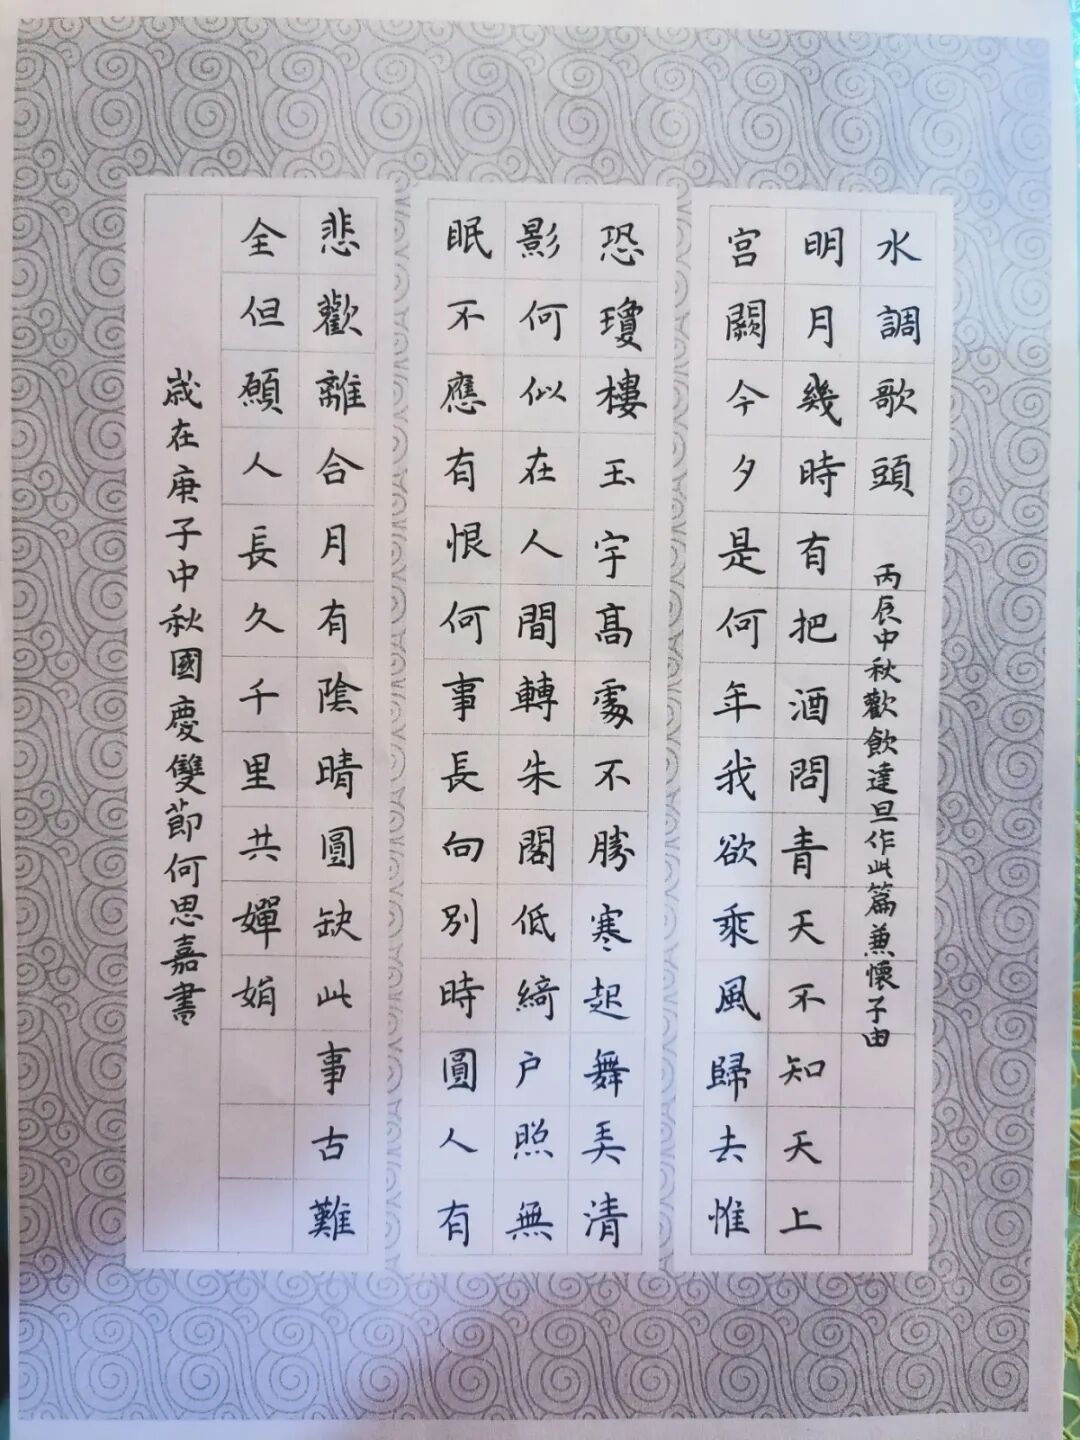 水調歌頭 丙辰中秋歡飲達旦作此篇兼懷子由
明月幾時有把酒問青天不知天上
宮闕今夕是何年我欲乘風歸去惟
恐瓊樓玉宇高處不勝寒起舞弄清
影何似在人間轉朱閣低綺户照無
眠不應有恨何事長向別時圓人有
悲歡離合月有陰晴圓缺此事古難
全但願人長久千里共嬋娟
歲在庚子中秋國慶雙節何思嘉書